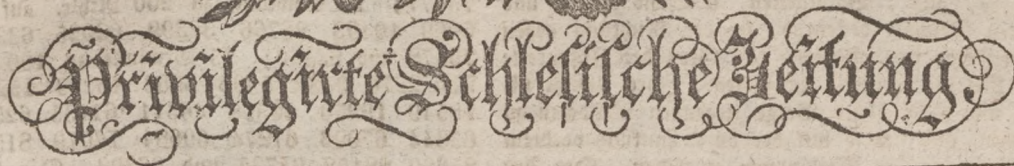 Privilegirte Schlesische Zeitung.